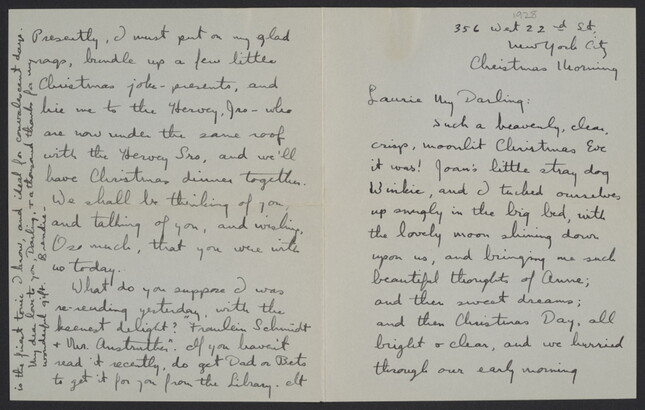 1928
356 West 22nd St.
New York City
Christmas Morning
Laurie My Darling:
Such a heavenly, clear,
crisp, moonlit Christmas Eve
it was! Joan's little stray dog
Winkie, and I tucked ourselves
up snugly in the big bed, with
the lovely moon shining down
upon us, and bringing me such
beautiful thoughts of Anne;
and then sweet dreams;
and then Christmas Day, all
bright & clear, and we hurried
through our early morning
Presently, I must put on my glad
rags, bundle up a few little
Christmas joke-presents, and
hie me to the Hervey, Jrs- who
are now under the same roof
with the Hervey Srs, and we'll
have Christmas dinner together.
We shall be thinking of you,
and talking of you, and wishing,
O so much, that you were with
us today.
What do you suppose I was
re-reading yesterday, with the
keenest delight? "Fraulein Schmidt
& Mr. Anstruther". If you haven't
read it recently, do get Dad or Bets
to get it for you from the Library. It
is the finest tonic I know, and ideal for convalescent days.
My dear love to you, Darling, & a thousand thanks for my
wonderful gift.